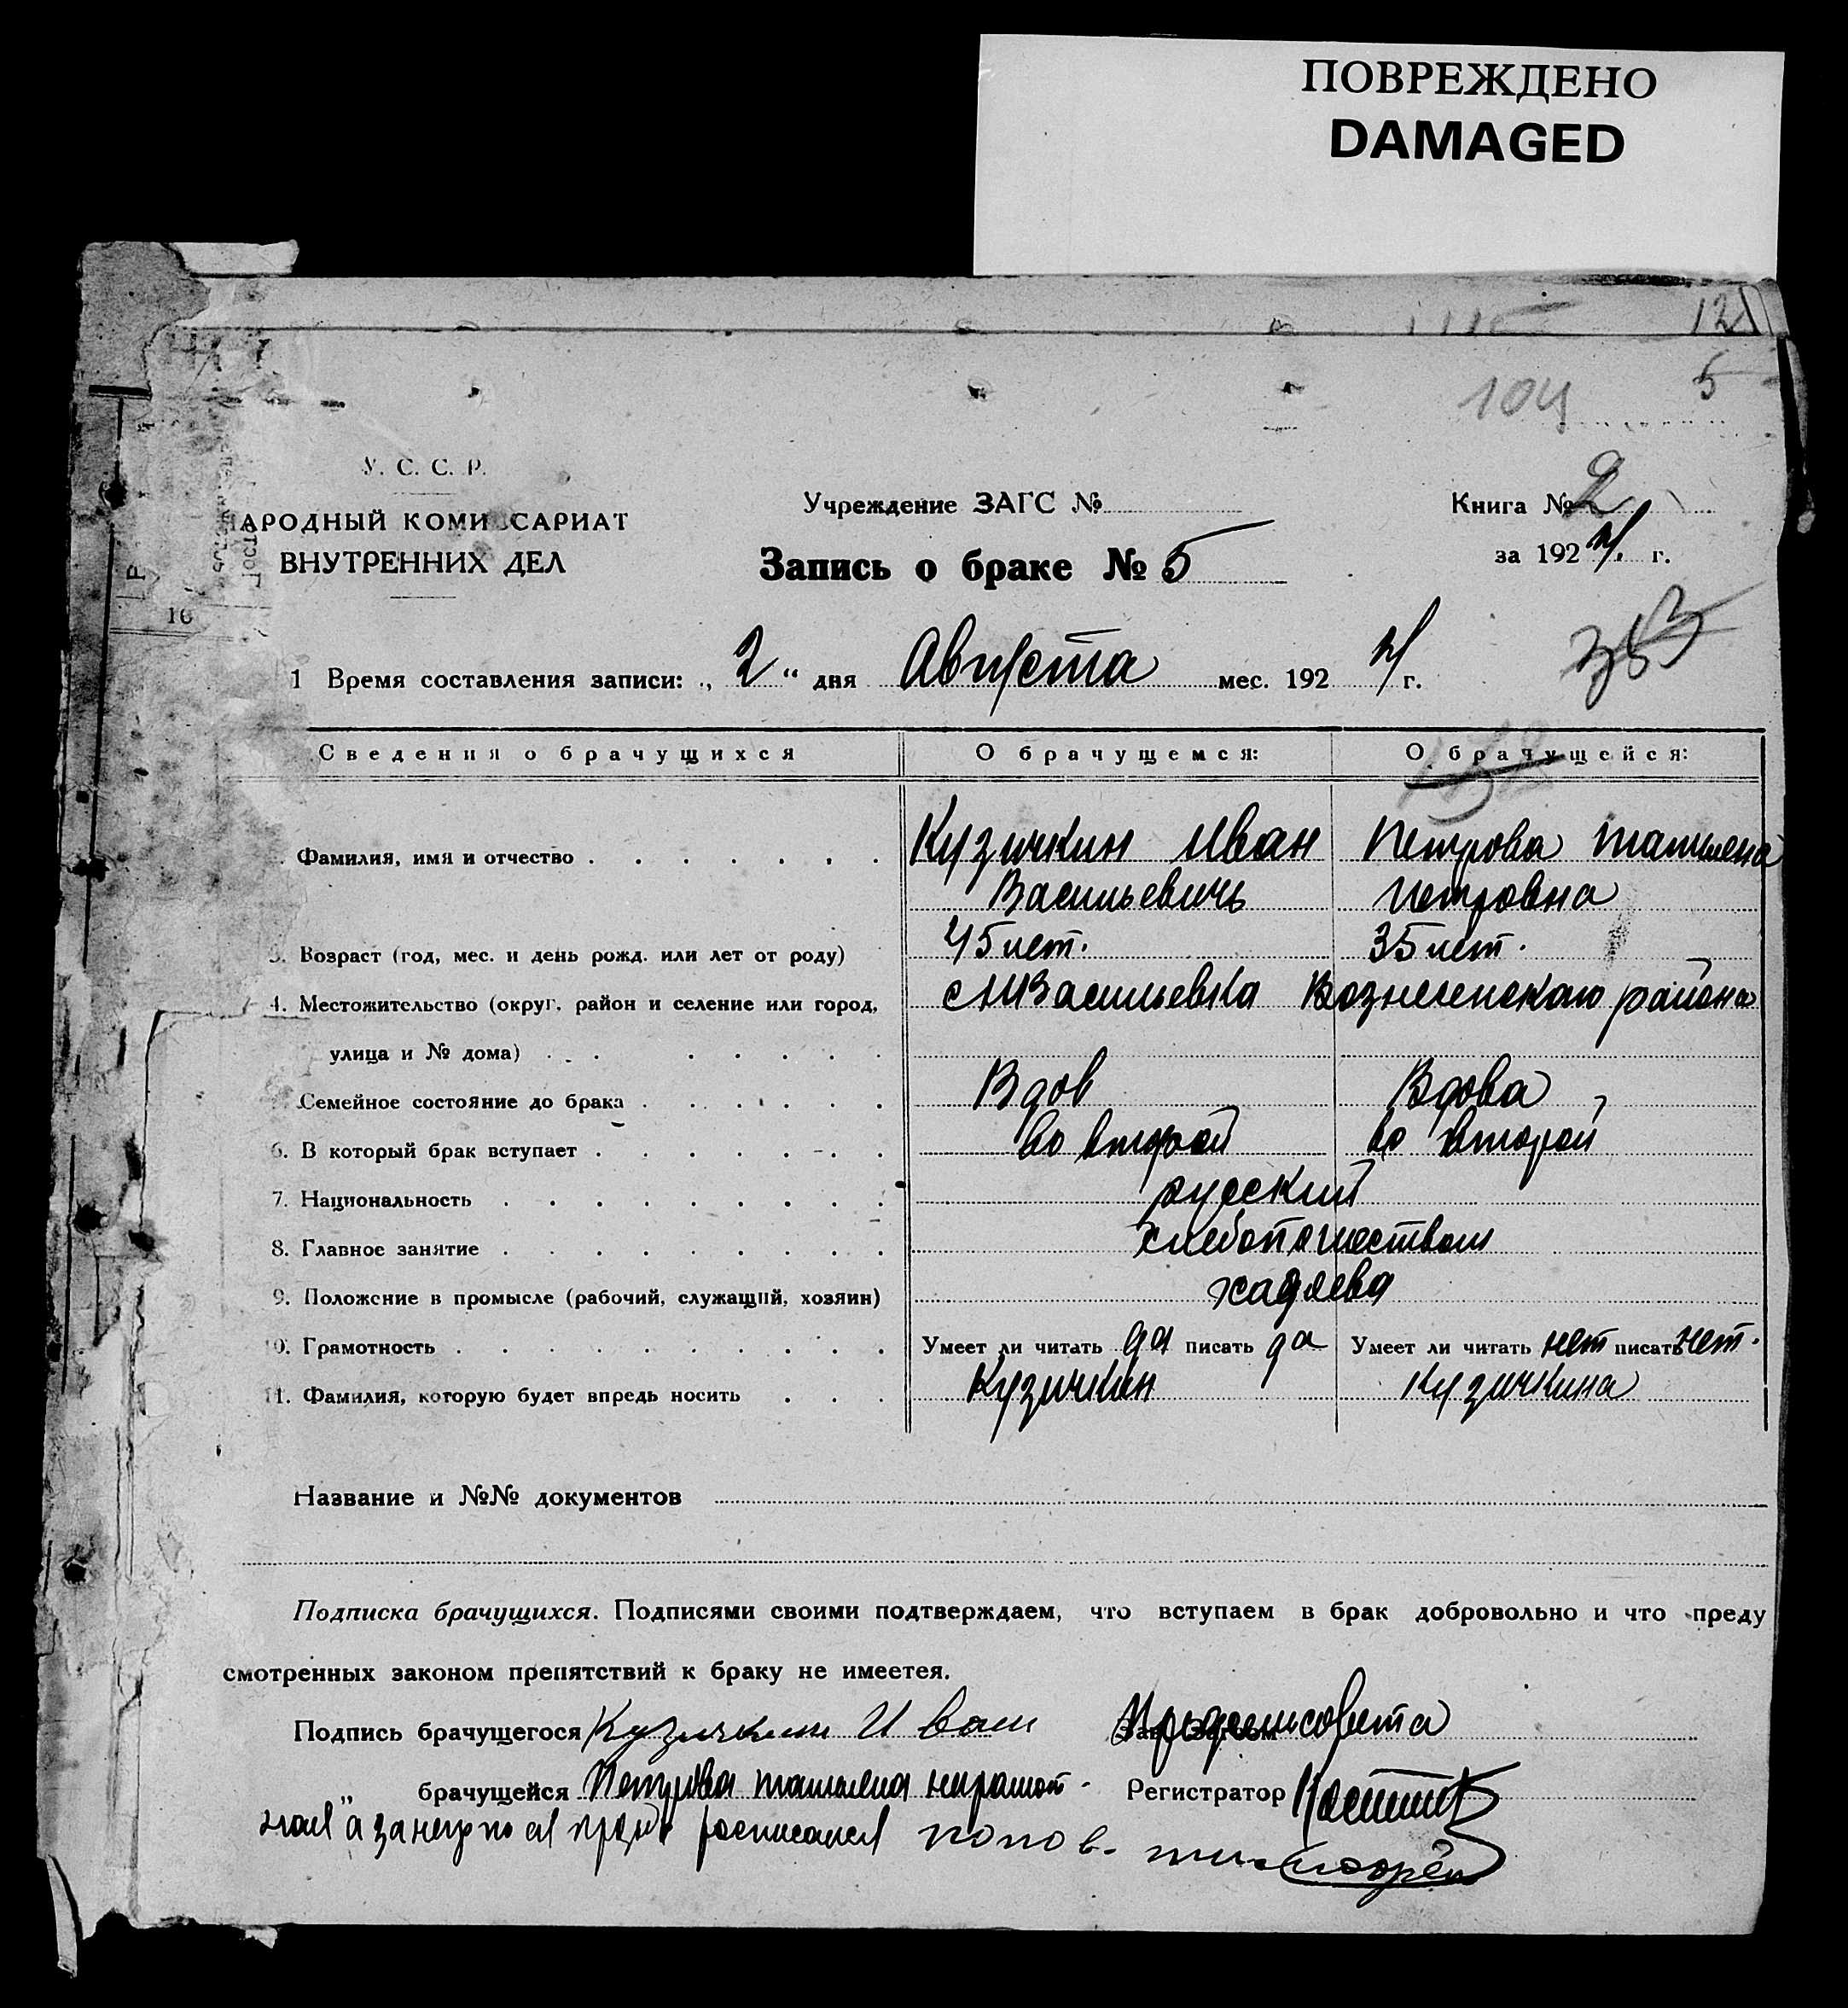 ПОВРЕЖДЕНО
DAMAGED
12
104 5
У. С. С. Р.
НАРОДНЫЙ КОМИССАРИАТ
ВНУТРЕННИХ ДЕЛ
Учреждение ЗАГС №
Книга № 2
Запись о браке № 5
за 1924 г.
16
353
1 Время составления записи: „ 2 “ дня Августа мес. 1924 г.
Сведения о брачущихся О брачущемся: О брачущейся:
Фамилия, имя и отчество Кузичкин Иван Петрова
Васильевичь Петровна
3. Возраст (год, мес. и день рожд. или лет от роду) 45 лет. 35 лет.
4. Местожительство (округ, район и селение или город, Васильевка Вознесенскаго района
улица и № дома)
Семейное состояние до брака Вдов Вдова
6. В который брак вступает во второй во второй
7. Национальность русский
8. Главное занятие хлебопашеством
9. Положение в промысле (рабочий, служащий, хозяин)
10. Грамотность Умеет ли читать да писать да Умеет ли читать нет писать нет.
11. Фамилия, которую будет впредь носить Кузичкин Кузичкина
Название и №№ документов
Подписка брачущихся. Подписями своими подтверждаем, что вступаем в брак добровольно и что преду
смотренных законом препятствий к браку не имеетея.
Подпись брачущегося Кузичкин Иван
„ брачущейся Петрова Регистратор
росписался попов.